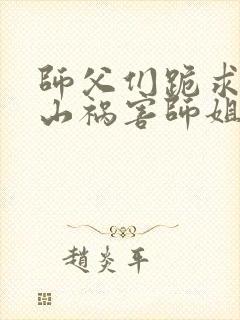 師父们跪求
山祸害師姐
趙炎平